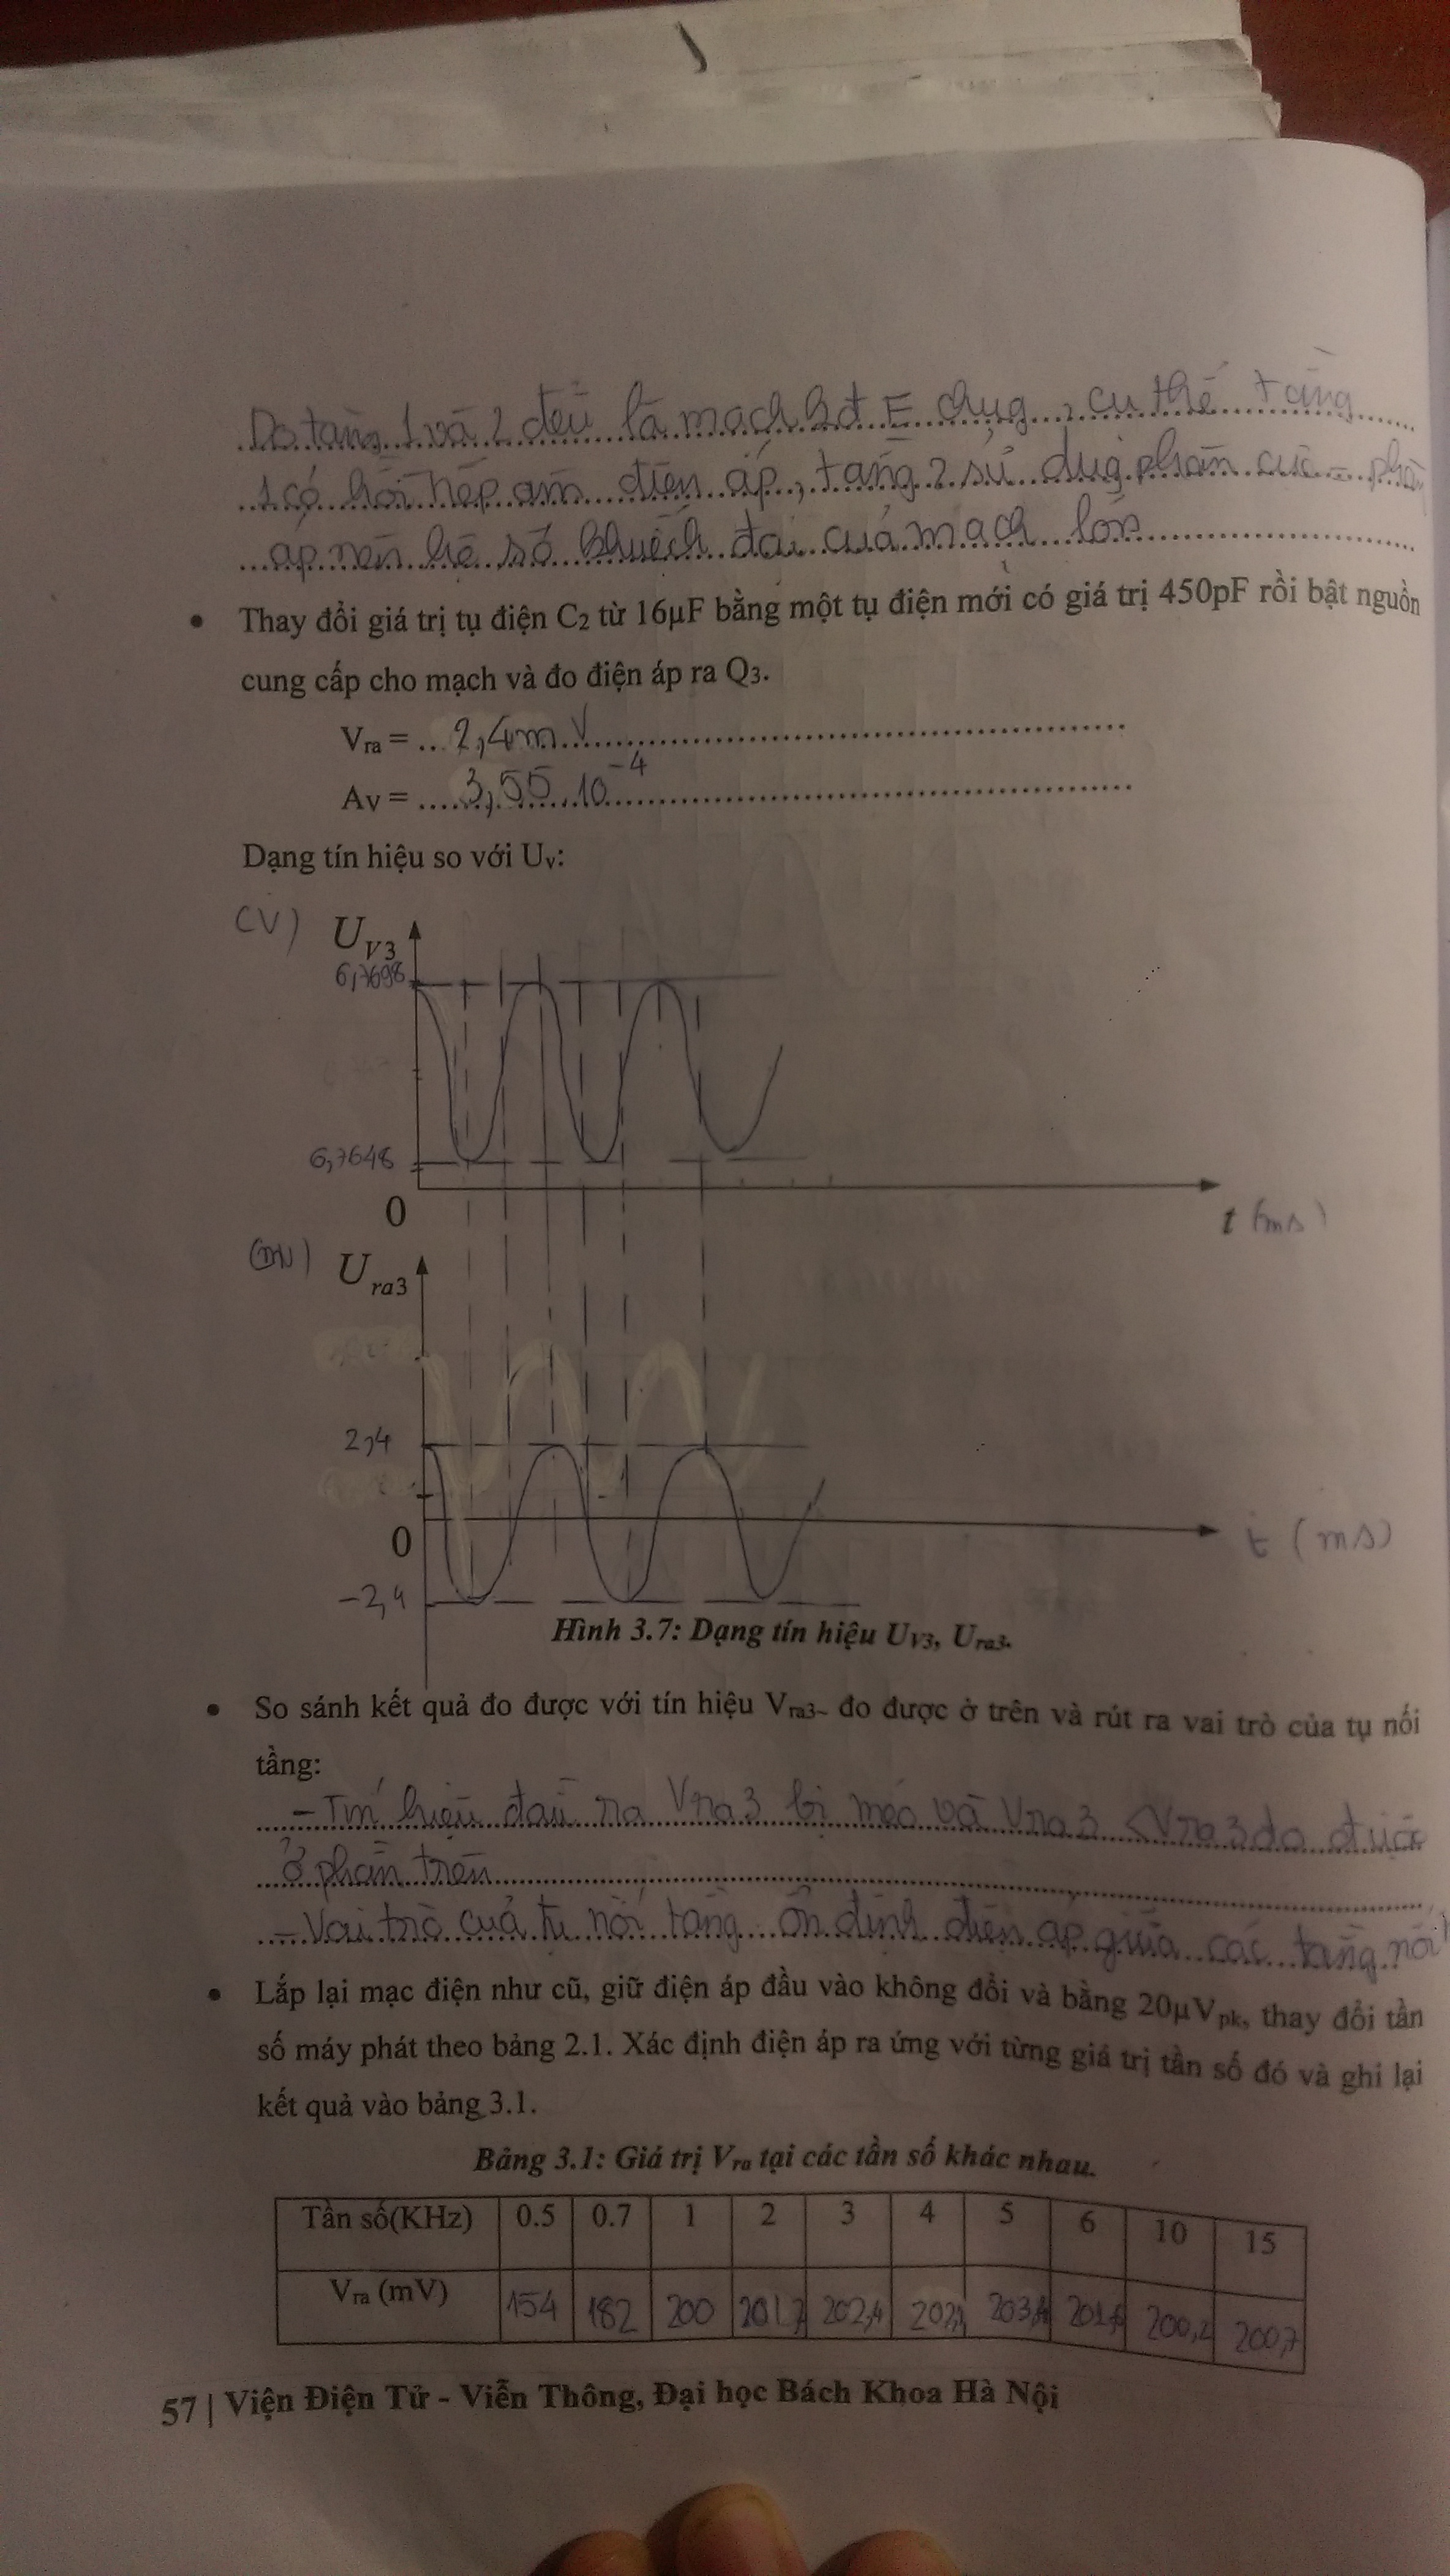 Do tầng 1 và 2 đều là mạch kđ E chug, cụ thể tầng
1 có hồi tiếp âm điện áp, tầng 2 sử dug phân cực = phân
áp nên hệ số khuếch đại của mạch lớn
• Thay đổi giá trị tụ điện C₂ từ 16µF bằng một tụ điện mới có giá trị 450pF rồi bật nguồn
cung cấp cho mạch và đo điện áp ra Q₃.
Vra = 2,4mV
Av = 3,55 10⁻⁴
Dạng tín hiệu so với Uv:
(V) U V3
6,7698
6,7648
0
t (ms)
(mV) U ra3
2,4
0
t (ms)
-2,4
Hình 3.7: Dạng tín hiệu UV3, Ura3.
• So sánh kết quả đo được với tín hiệu Vra3~ đo được ở trên và rút ra vai trò của tụ nối
tầng:
- Tín hiệu đầu ra Vra3 bị méo và Vra3 < Vra3 đo được
ở phần trên
- Vai trò của tụ nối tầng ổn định điện áp giữa các tầng nối
• Lắp lại mạc điện như cũ, giữ điện áp đầu vào không đổi và bằng 20µVpk, thay đổi tần
số máy phát theo bảng 2.1. Xác định điện áp ra ứng với từng giá trị tần số đó và ghi lại
kết quả vào bảng 3.1.
Bảng 3.1: Giá trị Vra tại các tần số khác nhau.
Tần số(KHz) 0.5 0.7 1 2 3 4 5 6 10 15
Vra (mV) 154 182 200 201,7 202,4 203,4 201,6 200,2 200,7
57 | Viện Điện Tử - Viễn Thông, Đại học Bách Khoa Hà Nội